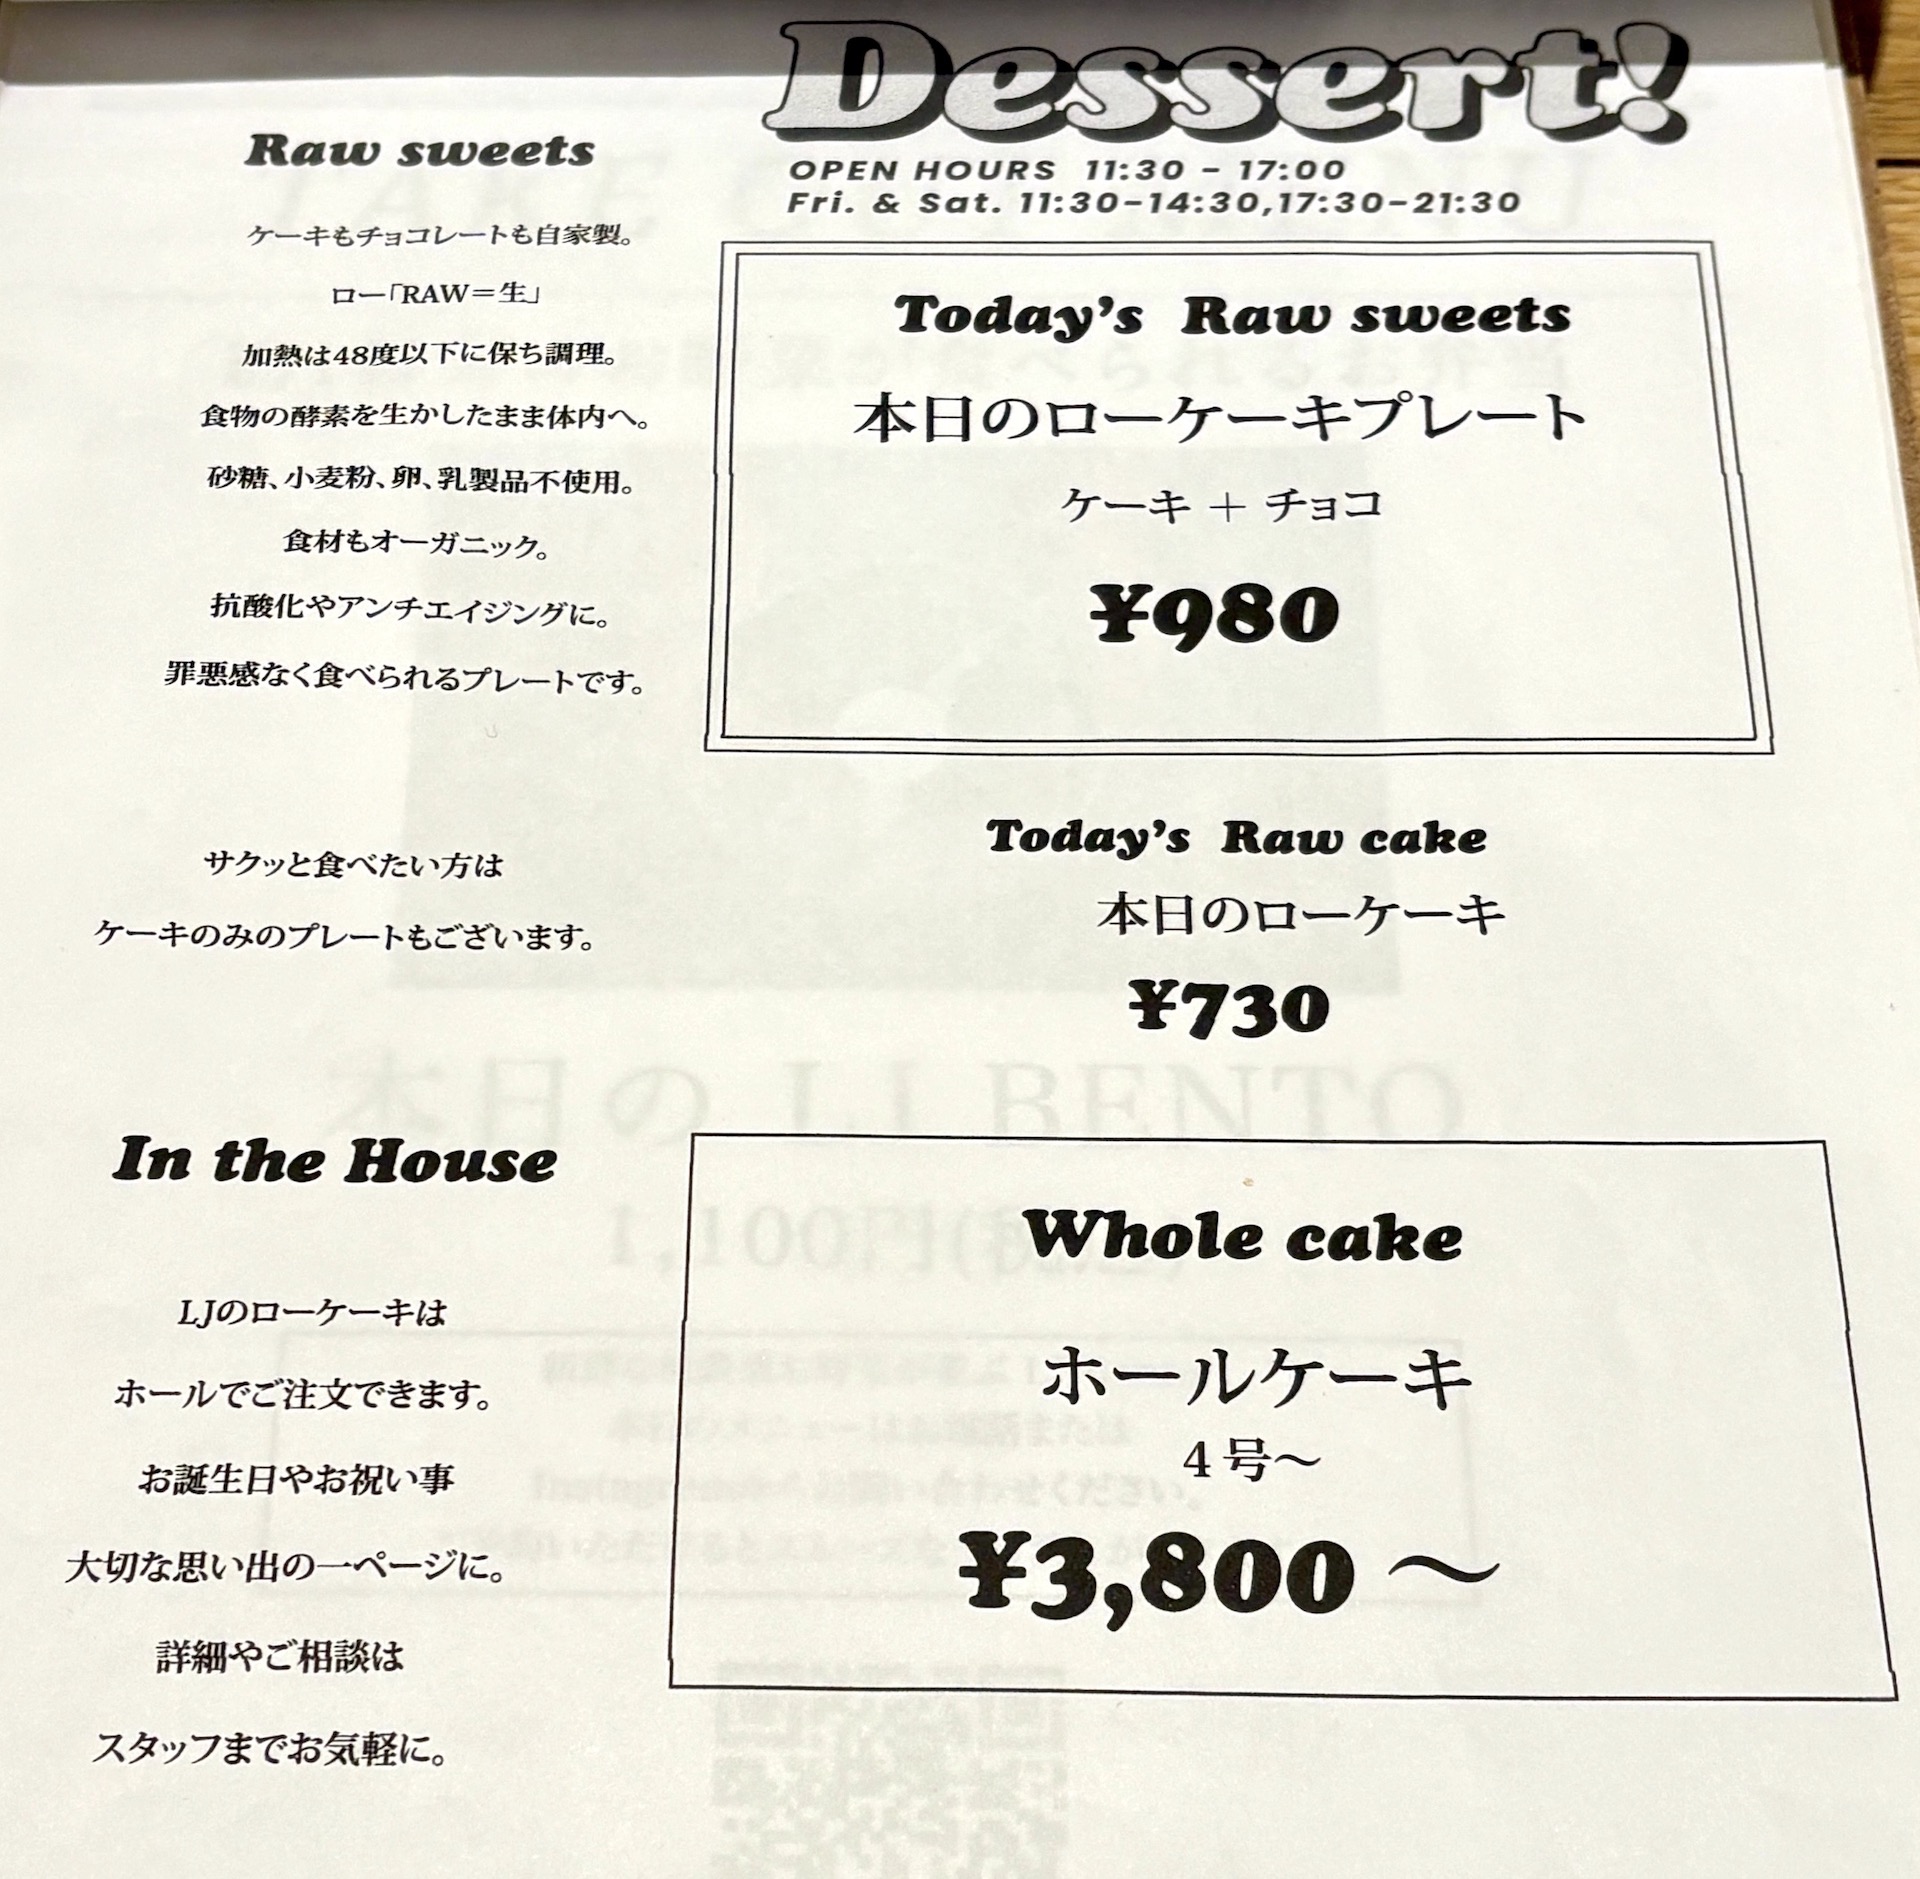 Dessert!
OPEN HOURS 11:30 - 17:00
Fri. & Sat. 11:30-14:30,17:30-21:30
Raw sweets
ケーキもチョコレートも自家製。
ロー「RAW＝生」
加熱は48度以下に保ち調理。
食物の酵素を生かしたまま体内へ。
砂糖、小麦粉、卵、乳製品不使用。
食材もオーガニック。
抗酸化やアンチエイジングに。
罪悪感なく食べられるプレートです。
Today's Raw sweets
本日のローケーキプレート
ケーキ + チョコ
¥980
サクッと食べたい方は
ケーキのみのプレートもございます。
Today's Raw cake
本日のローケーキ
¥730
In the House
LJのローケーキは
ホールでご注文できます。
お誕生日やお祝い事
大切な思い出の一ページに。
詳細やご相談は
スタッフまでお気軽に。
Whole cake
ホールケーキ
4号〜
¥3,800〜
本日の LJ BENTO
1,100円(税込)